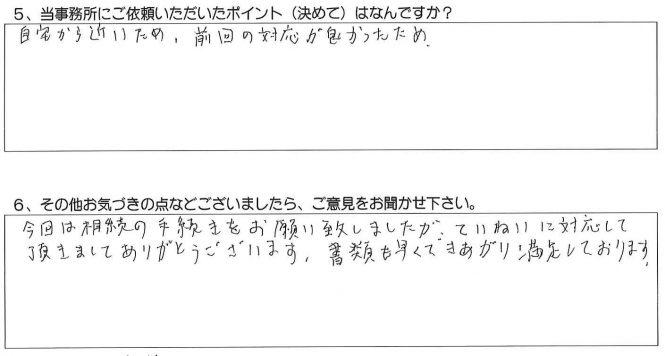 5、当事務所にご依頼いただいたポイント（決めて）はなんですか？
自宅から近いため、前回の対応が良かったため.
6、その他お気づきの点などございましたら、ご意見をお聞かせ下さい。
今回は相続の手続きをお願い致しましたが、ていねいに対応して
頂きましてありがとうございます。書類も早くできあがり満足しております。